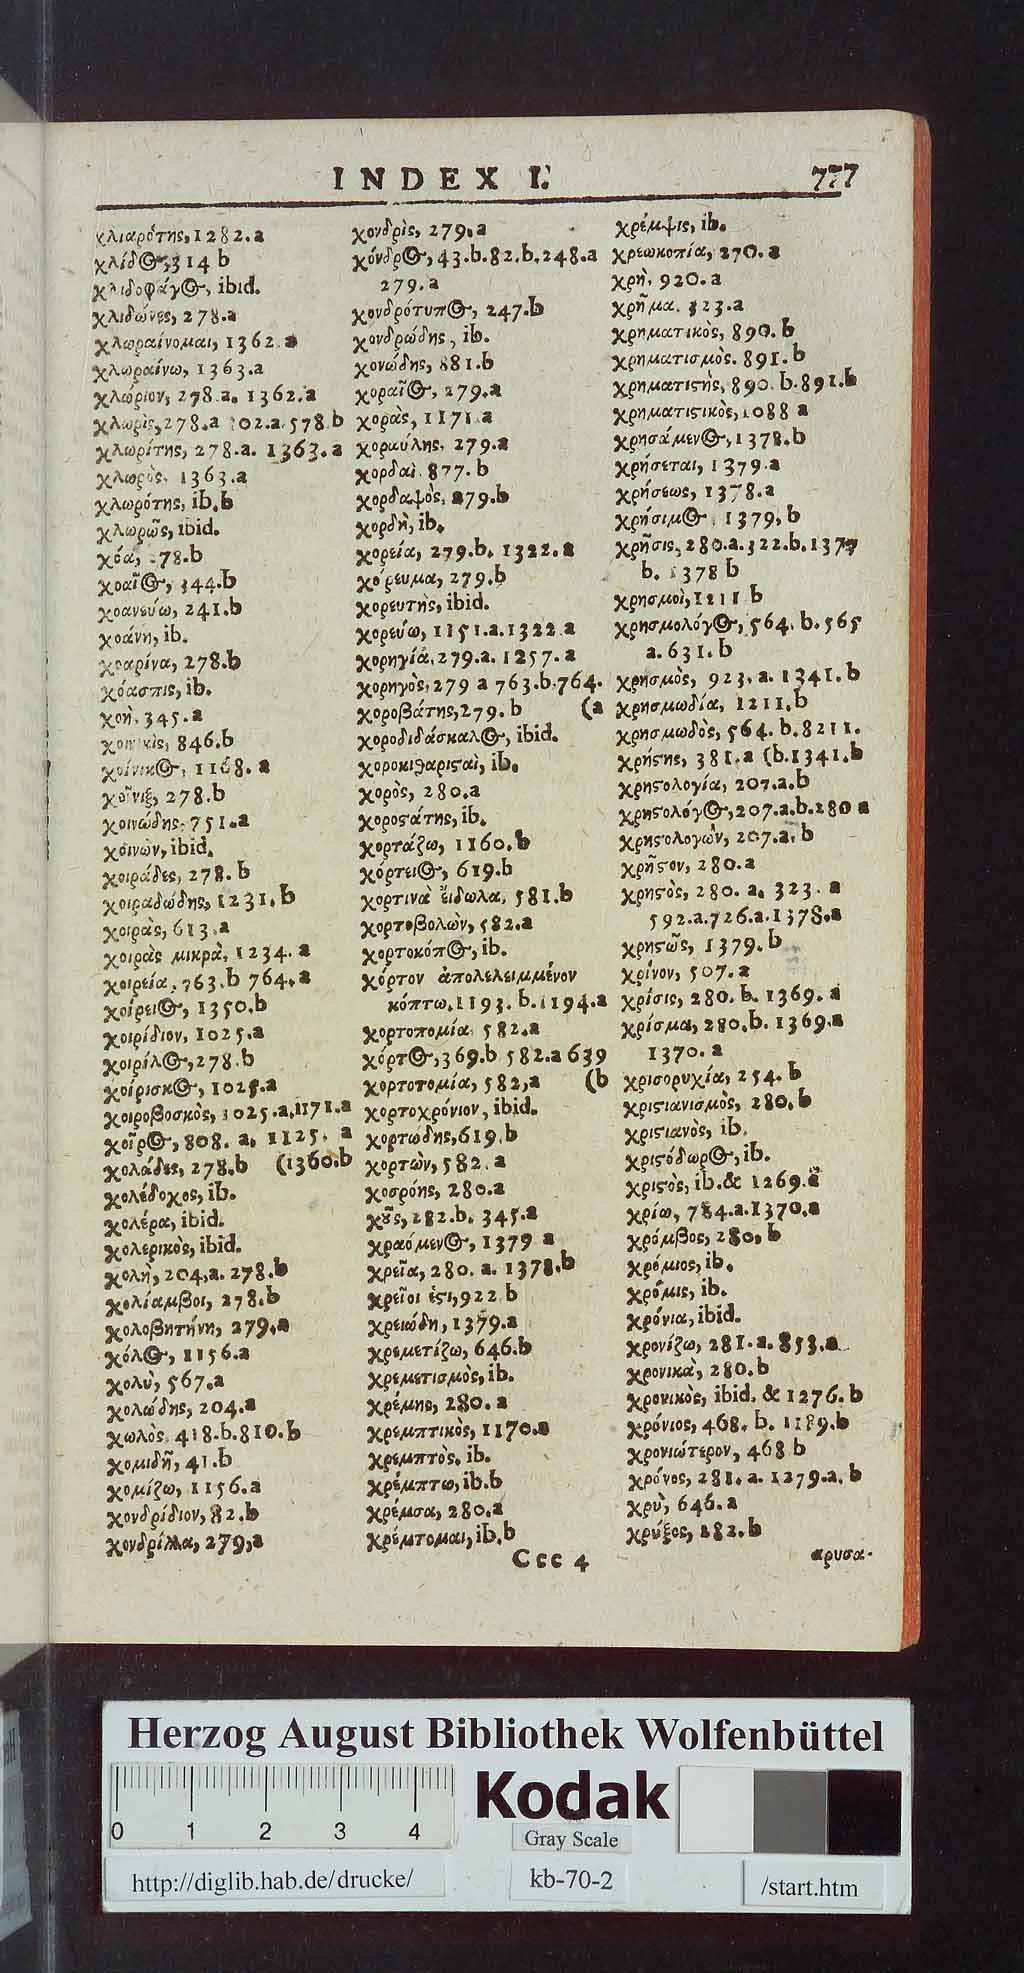 INDEX I. 777
χλιαρότης, 1282.a
χλίδος, 314 b
χλιδοφάγος, ibid.
χλιδώνες, 278.a
χλωραίνομαι, 1362.a
χλωραίνω, 1363.a
χλώριον, 278.a. 1362.a
χλωρὶς, 278.a 02.a. 578.b
χλωρίτης, 278.a. 1363.a
χλωρὸς. 1363.a
χλωρότης, ib.b
χλωρῶς, ibid.
χόα, 278.b
χοαῖος, 344.b
χοανεύω, 241.b
χοάνη, ib.
χοαρίνα, 278.b
χόασπις, ib.
χοὴ, 345.a
846.b
χοίνικος, 1168.a
χοῖνιξ, 278.b
χοινώδης, 751.a
χοινὼν, ibid.
χοιράδες, 278.b
χοιραδώδης, 1231.b
χοιρὰς, 613.a
χοιρὰς μικρὰ, 1234.a
χοιρεία, 763.b 764.a
χοίρειος, 1350.b
χοιρίδιον, 1025.a
χοιρίλος, 278.b
χοίρισκος, 1025.a
χοιροβοσκὸς, 1025.a, 1171.a
χοῖρος, 808. a. 1125. a
χολάδες, 278.b (1360.b
χολέδοχος, ib.
χολέρα, ibid.
χολερικὸς, ibid.
χολὴ, 204.a. 278.b
χολίαμβοι, 278.b
χολοβητήνη, 279.a
χόλος, 1156.a
χολὺ, 567.a
χολώδης, 204.a
χωλὸς, 418.b. 810.b
χομιδῆ, 41.b
χομίζω, 1156.a
χονδρίδιον, 82.b
χονδρίλλα, 279,a
χονδρὶς, 279.a
χόνδρος, 43.b. 82.b. 248.a
279.a
χονδρότυπος, 247.b
χονδρώδης, ib.
χονώδης, 881.b
χοραῖος, 279.a
χορὰς, 1171.a
χοραύλης, 279.a
χορδαὶ 877.b
χορδαψὸς, 279.b
χορδὴ, ib.
χορεία, 279.b. 1322.a
χόρευμα, 279.b
χορευτὴς, ibid.
χορεύω, 1151.a. 1322.a
χορηγία, 279.a. 1257.a
χορηγὸς, 279 a 763.b. 764.
χοροβάτης, 279. b (a
χοροδιδάσκαλος, ibid.
χοροκιθαριϛαὶ, ib.
χορὸς, 280.a
χοροϛάτης, ib.
χορτάζω, 1160.b
χόρτειος, 619.b
χορτινὰ εἴδωλα, 581.b
χορτοβολὼν, 582.a
χορτοκόπος, ib.
χόρτον ἀπολελειμμένον
κόπτω, 1193. b. 1194.a
χορτοπομία, 582.a
χόρτος, 369.b 582.a 639
χορτοτομία, 582,a (b
χορτοχρόνιον, ibid.
χορτώδης, 619.b
χορτὼν, 582.a
χοσρόης, 280.a
χοῦς, 282.b. 345.a
χραόμενος, 1379 a
χρεῖα, 280. a. 1378.b
χρεῖοι ἐϛι, 922 b
χρειώδη, 1379.a
χρεμετίζω, 646.b
χρεμετισμὸς, ib.
χρέμης, 280.a
χρεμπτικὸς, 1170.a
χρεμπτὸς, ib.
χρέμπτω, ib.b
χρέμσα, 280.a
χρέμτομαι, ib.b
χρέμψις, ib.
χρεωκοπία, 270.a
χρὴ, 920.a
χρῆμα, 323.a
χρηματικὸς, 890.b
χρηματισμὸς. 891.b
χρηματιϛὴς, 890.b. 891.b
χρηματιϛικὸς, 1088 a
χρησάμενος, 1378.b
χρήσεται, 1379.a
χρήσεως, 1378.a
χρήσιμος, 1379, b
χρῆσις, 280.a. 322.b. 1377
b. 1378 b
χρησμοὶ, 1211 b
χρησμολόγος, 564. b. 565
a. 631. b
χρησμὸς, 923. a. 1341. b
χρησμωδία, 1211.b
χρησμωδὸς, 564. b. 8211.
χρήϛης, 381.a (b. 1341.b
χρηϛολογία, 207.a.b
χρηϛολόγος, 207.a.b. 280 a
χρηϛολογῶν, 207.a. b
χρῆϛον, 280.a
χρηϛὸς, 280. a. 323. a
592.a. 726.a. 1378.a
χρηϛῶς, 1379.b
χρίνον, 507.a
χρίσις, 280. b. 1369. a
χρίσμα, 280.b. 1369.a
1370. a
χρισορυχία, 254. b
χριϛιανισμὸς, 280.b
χριϛιανὸς, ib.
χριϛόδωρος, ib.
χριϛὸς, ib. & 1269.a
χρίω, 784.a. 1370.a
χρόμβος, 280. b
χρόμιος, ib.
χρόμις, ib.
χρόνια, ibid.
χρονίζω, 281.a. 853.a
χρονικὰ, 280.b
χρονικὸς, ibid. & 1276. b
χρόνιος, 468. b. 1189.b
χρονιώτερον, 468 b
χρόνος, 281. a. 1279.a. b
χρὺ, 646.a
χρύξος, 282.b
Ccc 4 χρυσα-
Herzog August Bibliothek Wolfenbüttel
Kodak
0 1 2 3 4
Gray Scale
http://diglib.hab.de/drucke/ kb-70-2 /start.htm